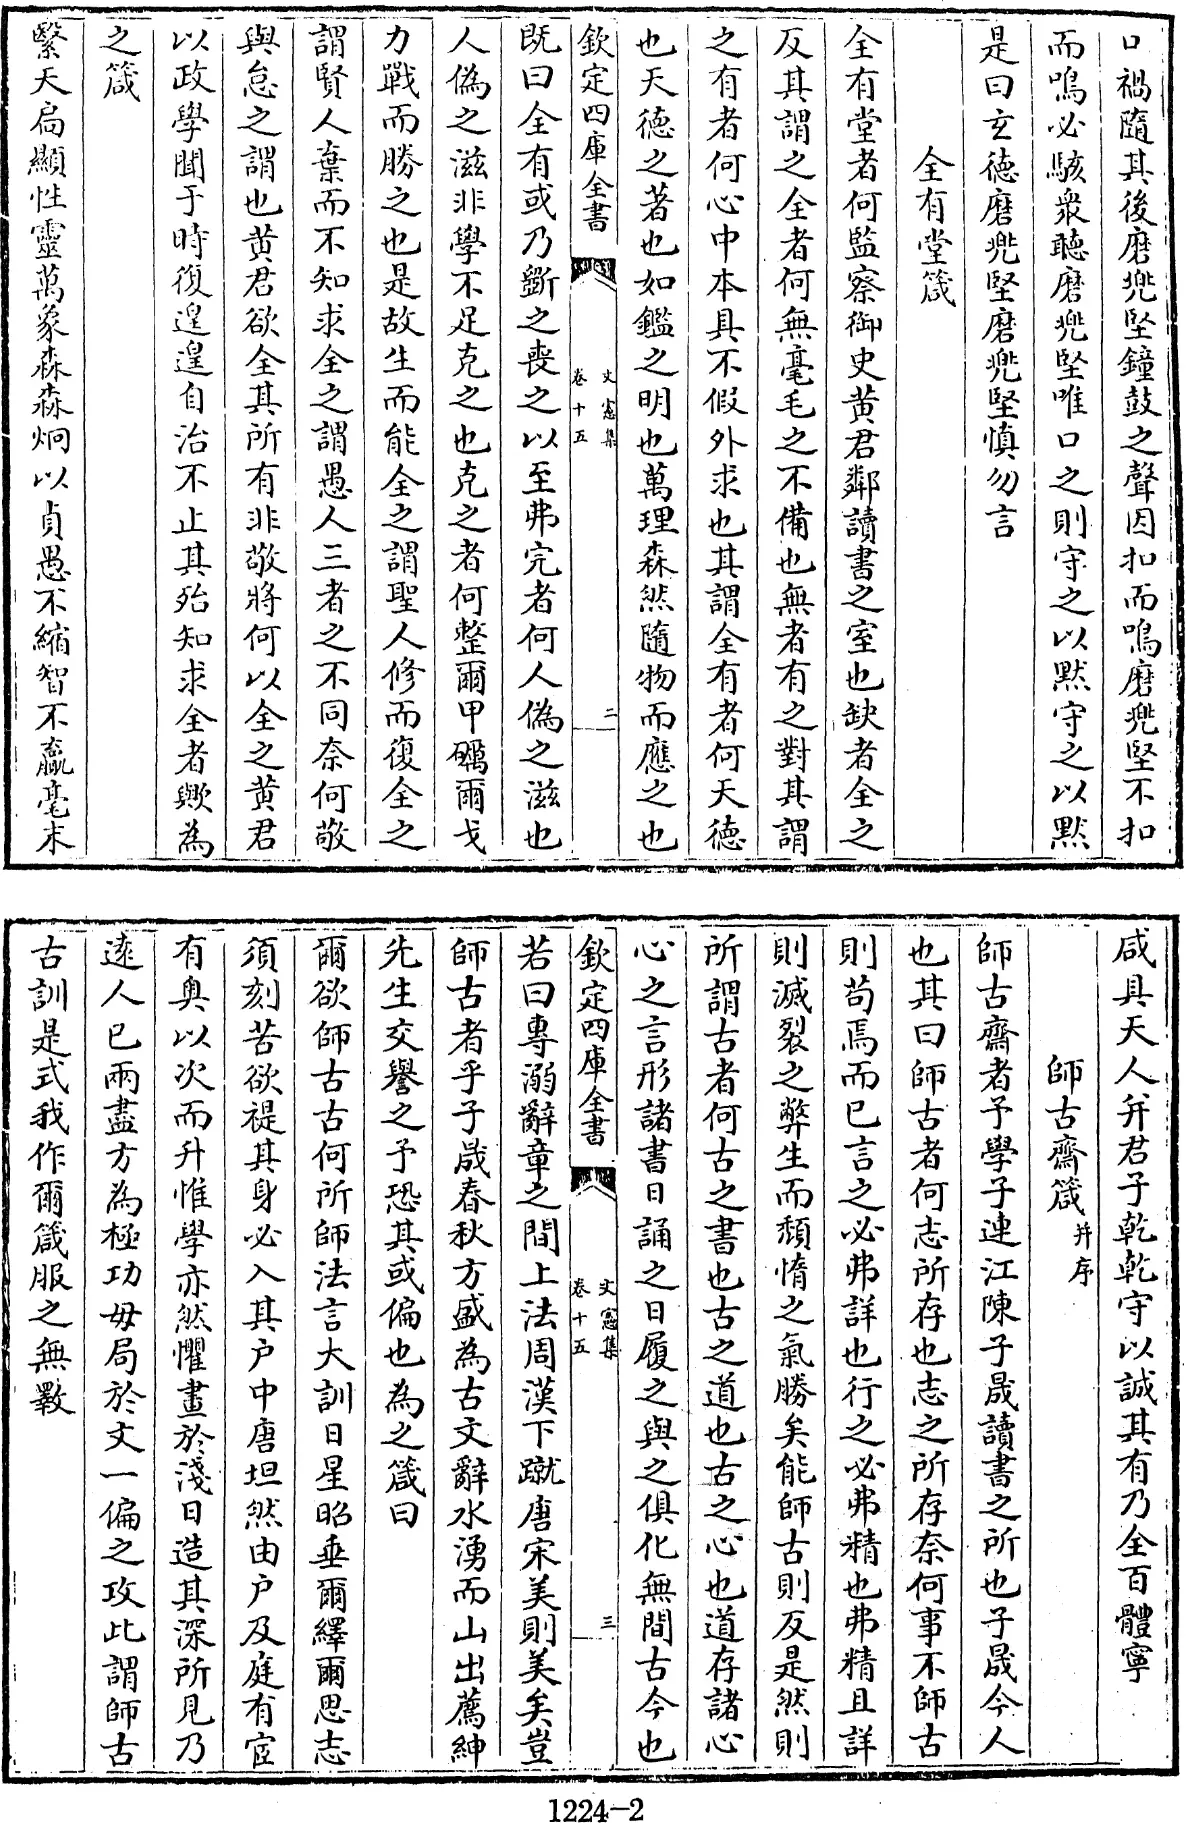 口禍隨其後磨兠堅鐘鼓之聲因扣而鳴磨兠堅不扣
而鳴必駭衆聽磨兠堅唯口之則守之以黙守之以黙
是曰玄徳磨兠堅磨兠堅慎勿言
全有堂箴
全有堂者何監察御史黄君鄰讀書之室也缺者全之
反其謂之全者何無毫毛之不備也無者有之對其謂
之有者何心中本具不假外求也其謂全有者何天徳
也天徳之著也如鑑之明也萬理森然隨物而應之也
欽定四庫全書
文憲集
卷十五
二
既曰全有或乃斵之喪之以至弗完者何人偽之滋也
人偽之滋非學不足克之也克之者何整爾甲礪爾戈
力戰而勝之也是故生而能全之謂聖人修而復全之
謂賢人棄而不知求全之謂愚人三者之不同奈何敬
與怠之謂也黄君欲全其所有非敬將何以全之黄君
以政學聞于時復遑遑自治不止其殆知求全者歟為
之箴
繄天扃顯性靈萬象森森炯以貞愚不縮智不贏毫末
咸具天人并君子乾乾守以誠其有乃全百體寧
師古齋箴并序
師古齋者予學子連江陳子晟讀書之所也子晟今人
也其曰師古者何志所存也志之所存奈何事不師古
則苟焉而已言之必弗詳也行之必弗精也弗精且詳
則滅裂之弊生而頽惰之氣勝矣能師古則反是然則
所謂古者何古之書也古之道也古之心也道存諸心
心之言形諸書日誦之日履之與之俱化無間古今也
欽定四庫全書
文憲集
卷十五
三
若曰專溺辭章之間上法周漢下蹴唐宋美則美矣豈
師古者乎子晟春秋方盛為古文辭水湧而山出薦紳
先生交譽之予恐其或偏也為之箴曰
爾欲師古古何所師法言大訓日星昭垂爾繹爾思志
須刻苦欲禔其身必入其户中唐坦然由户及庭有宧
有奥以次而升惟學亦然懼畫於淺日造其深所見乃
逺人已兩盡方為極功毋局於文一偏之攻此謂師古
古訓是式我作爾箴服之無斁
1224-2